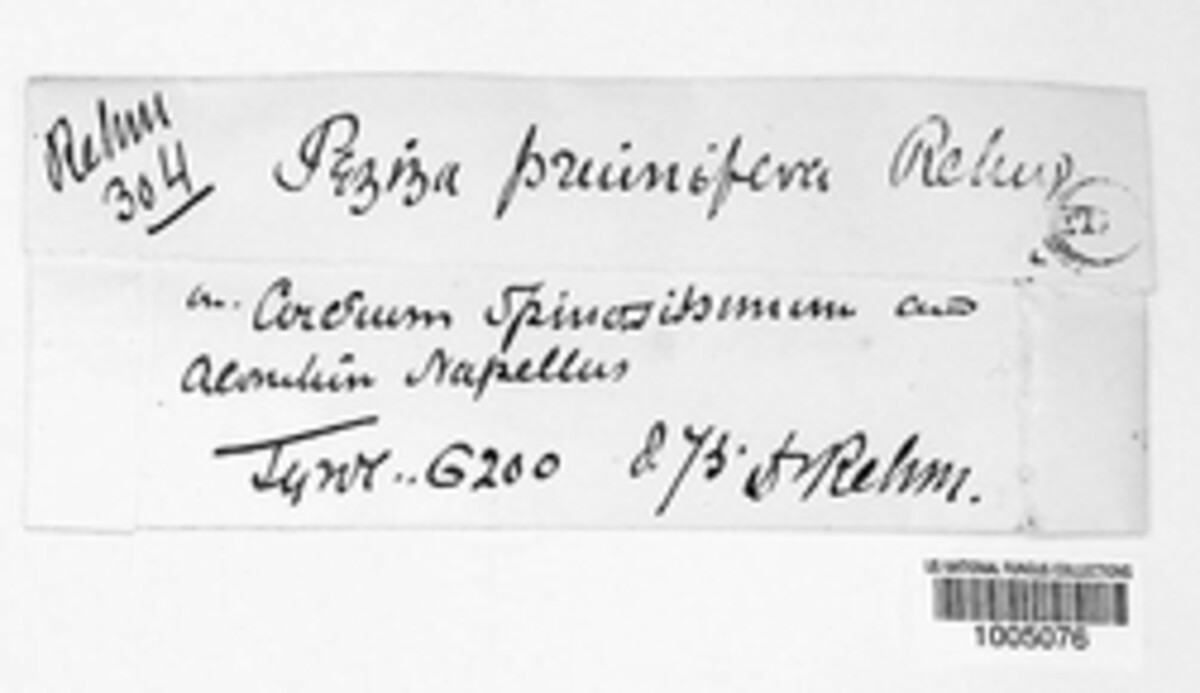 Rehm
304
Peziza prunifera Rehm
Carduum Spinosissimum and
Aconitum Napellus
Tyrol.. 6200 8/75. Dr Rehm.
US NATIONAL FUNGUS COLLECTIONS
1005076